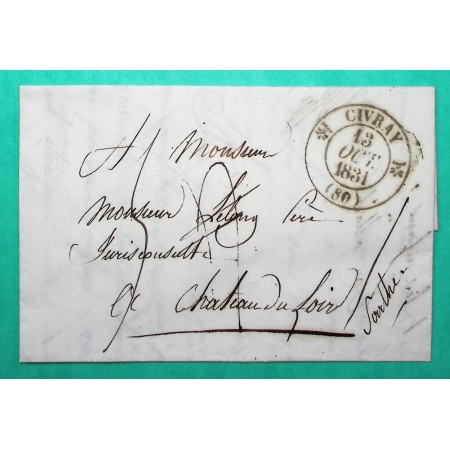 CIVRAY
13
OCT.
1831
(80)
A Monsieur
Monsieur Lelong Père
Jurisconsulte
à Chateau du Loir
Sarthe